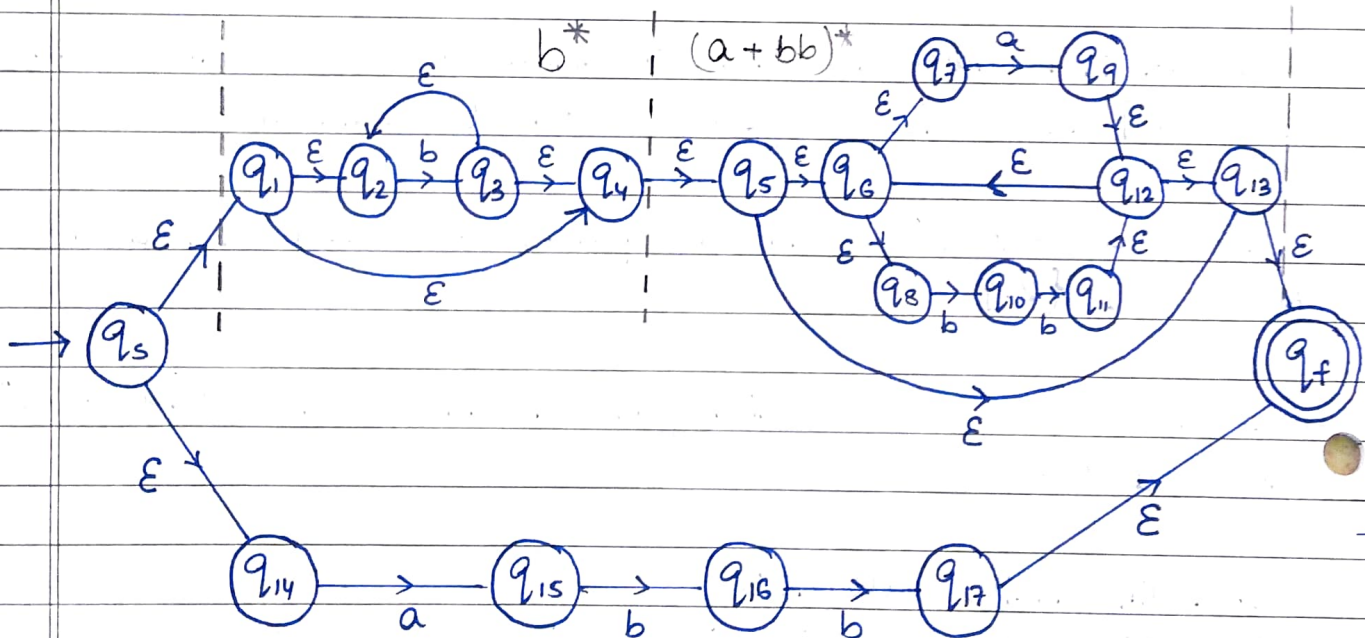 b* (a + bb)*
q7 a q9
ε
ε ε
q1 ε q2 b q3 ε q4 ε q5 ε q6 ε q12 ε q13
ε ε ε ε
ε q8 b q10 b q11
qs qf
ε
ε ε
q14 a q15 b q16 b q17